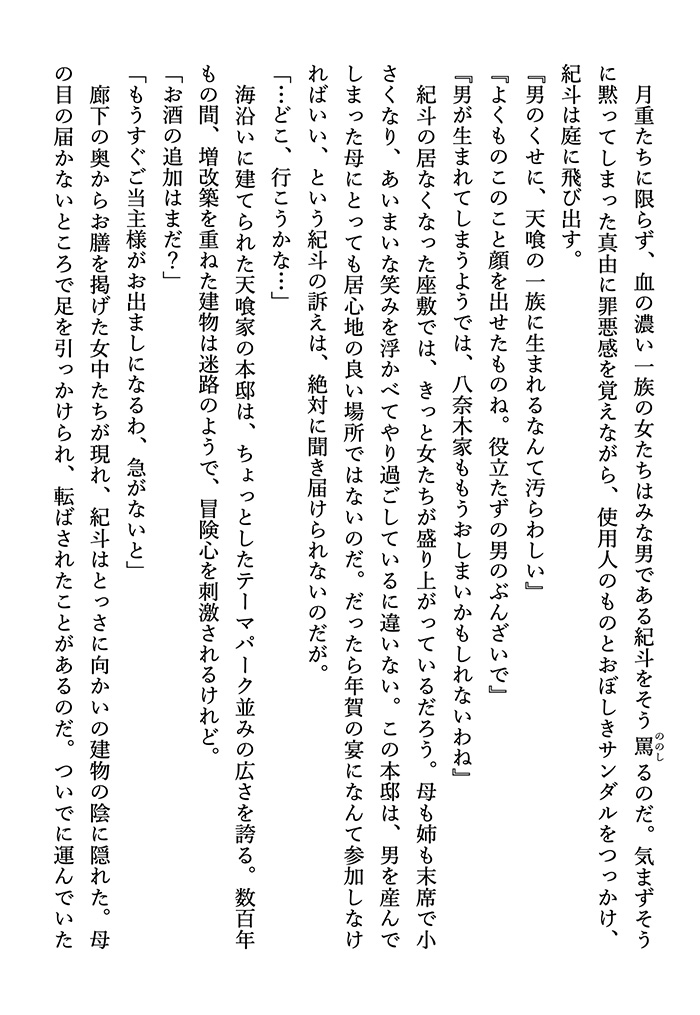 月重たちに限らず、血の濃い一族の女たちはみな男である紀斗をそう罵るのだ。気まずそう
ののし
に黙ってしまった真由に罪悪感を覚えながら、使用人のものとおぼしきサンダルをつっかけ、
紀斗は庭に飛び出す。
『男のくせに、天喰の一族に生まれるなんて汚らわしい』
『よくものこのこと顔を出せたものね。役立たずの男のぶんざいで』
『男が生まれてしまうようでは、八奈木家ももうおしまいかもしれないわね』
紀斗の居なくなった座敷では、きっと女たちが盛り上がっているだろう。母も姉も末席で小
さくなり、あいまいな笑みを浮かべてやり過ごしているに違いない。この本邸は、男を産んで
しまった母にとっても居心地の良い場所ではないのだ。だったら年賀の宴になんて参加しなけ
ればいい、という紀斗の訴えは、絶対に聞き届けられないのだが。
「…どこ、行こうかな…」
海沿いに建てられた天喰家の本邸は、ちょっとしたテーマパーク並みの広さを誇る。数百年
もの間、増改築を重ねた建物は迷路のようで、冒険心を刺激されるけれど。
「お酒の追加はまだ？」
「もうすぐご当主様がお出ましになるわ、急がないと」
廊下の奥からお膳を掲げた女中たちが現れ、紀斗はとっさに向かいの建物の陰に隠れた。母
の目の届かないところで足を引っかけられ、転ばされたことがあるのだ。ついでに運んでいた